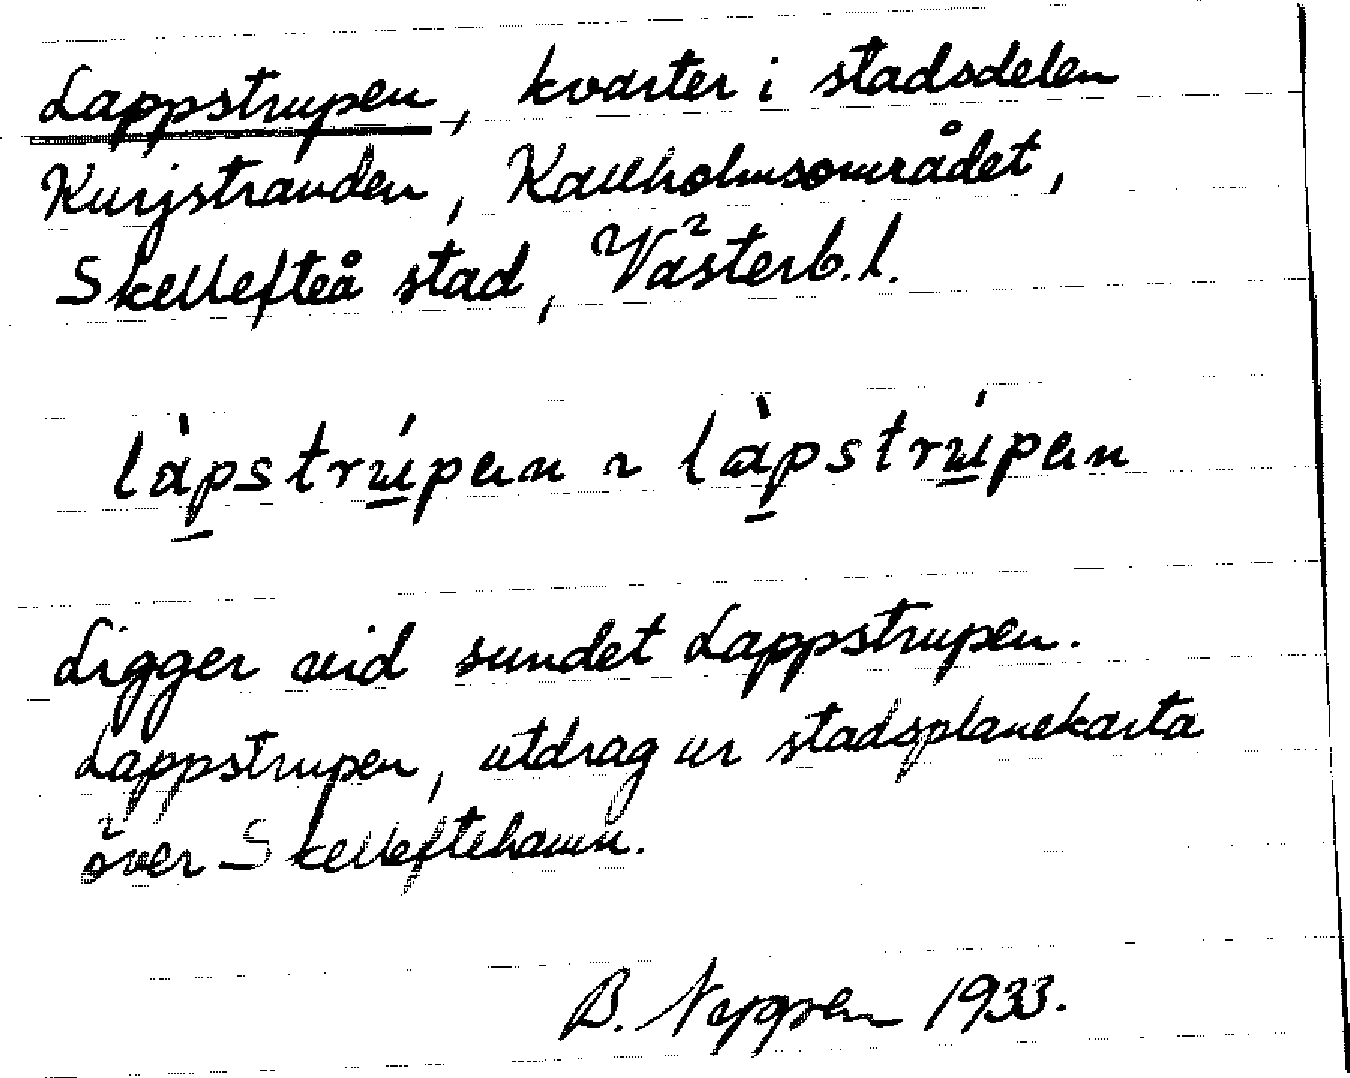 Lappstrupen, kvarter i stadsdelen
Kurjstranden, Kallholmsområdet,
Skellefteå stad, Västerb. l.
làpstrúpən ~ làpstrúpən
Ligger vid sundet Lappstrupen.
Lappstrupen, utdrag ur stadsplanekarta
över Skelleftehamn.
B. 1933.